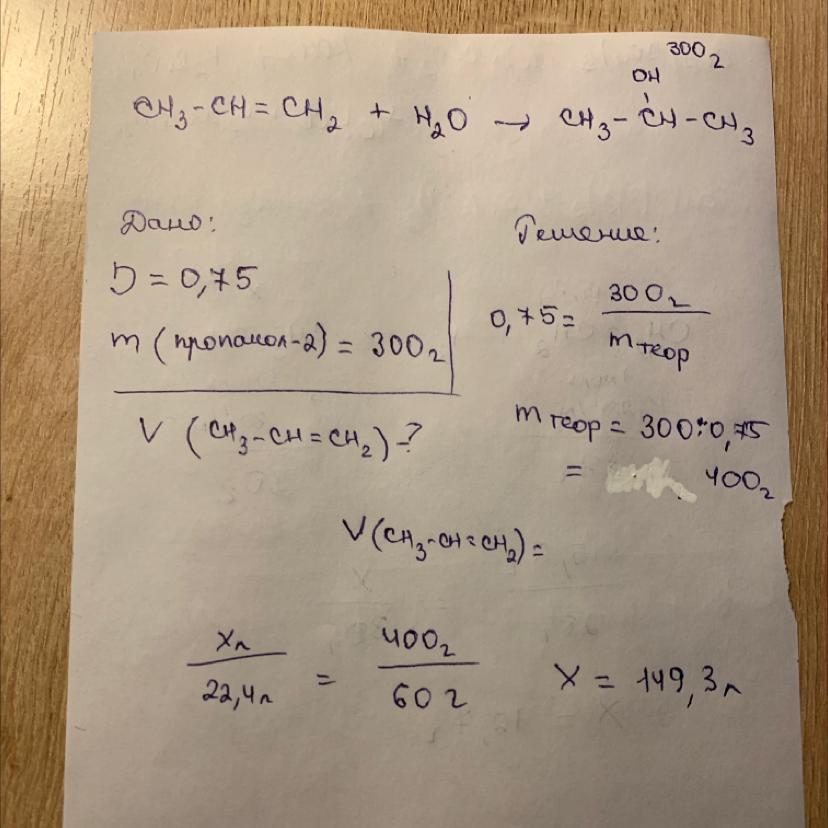 300г
OH
CH3-CH=CH2 + H2O → CH3-CH-CH3
Дано:
η = 0,75
m (пропанол-2) = 300г
V (CH3-CH=CH2)-?
Решение:
0,75 = 300г / mтеор
mтеор = 300:0,75
= 400г
V(CH3-CH=CH2) =
xл / 22,4л = 400г / 60г
X = 149,3л